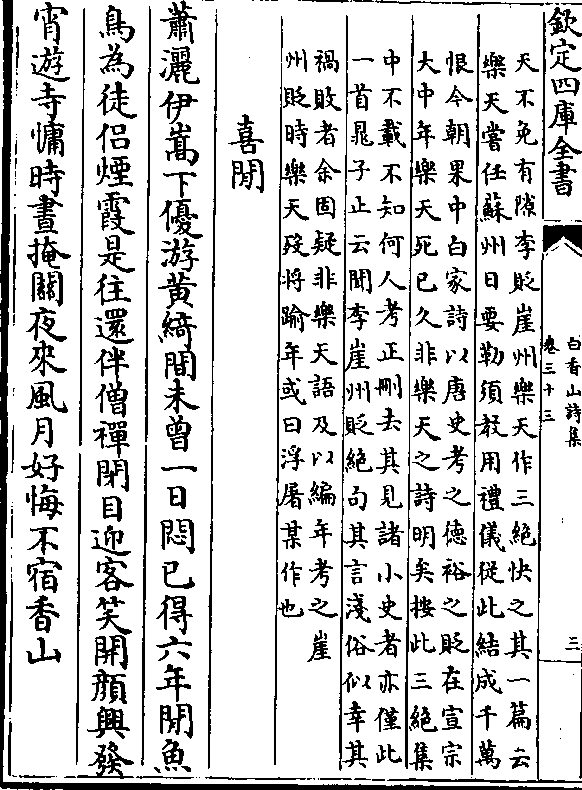 欽定四庫全書
白香山詩集
卷三十三
三
天不免有隙李貶崖州樂天作三絶快之其一篇云
樂天嘗任蘇州日要勒須教用禮儀從此結成千萬
恨今朝果中白家詩以唐史考之德裕之貶在宣宗
大中年樂天死已久非樂天之詩明矣按此三絶集
中不載不知何人考正刪去其見諸小史者亦僅此
一首晁子止云聞李崖州貶絶句其言淺俗似幸其
禍敗者余固疑非樂天語及以編年考之崖
州貶時樂天歿將踰年或曰浮屠某作也
喜閒
蕭灑伊嵩下優游黄綺間未曾一日悶已得六年閒魚
鳥為徒侣煙霞是往還伴僧禪閉目迎客笑開顔興發
宵遊寺慵時晝掩關夜來風月好悔不宿香山